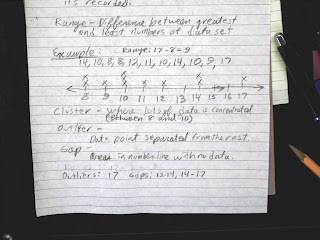 it's recorded.
Range - Difference between greatest
and least numbers of data set
Example: Range: 17-8=9
14, 10, 8, 8, 12, 11, 10, 14, 10, 9, 17
8 9 10 11 12 13 14 15 16 17
Cluster - where lots of data is concentrated
(between 8 and 10)
Outlier -
Data point separated from the rest.
Gap -
Areas in number line with no data.
Outliers: 17 Gaps: 12-14, 14-17